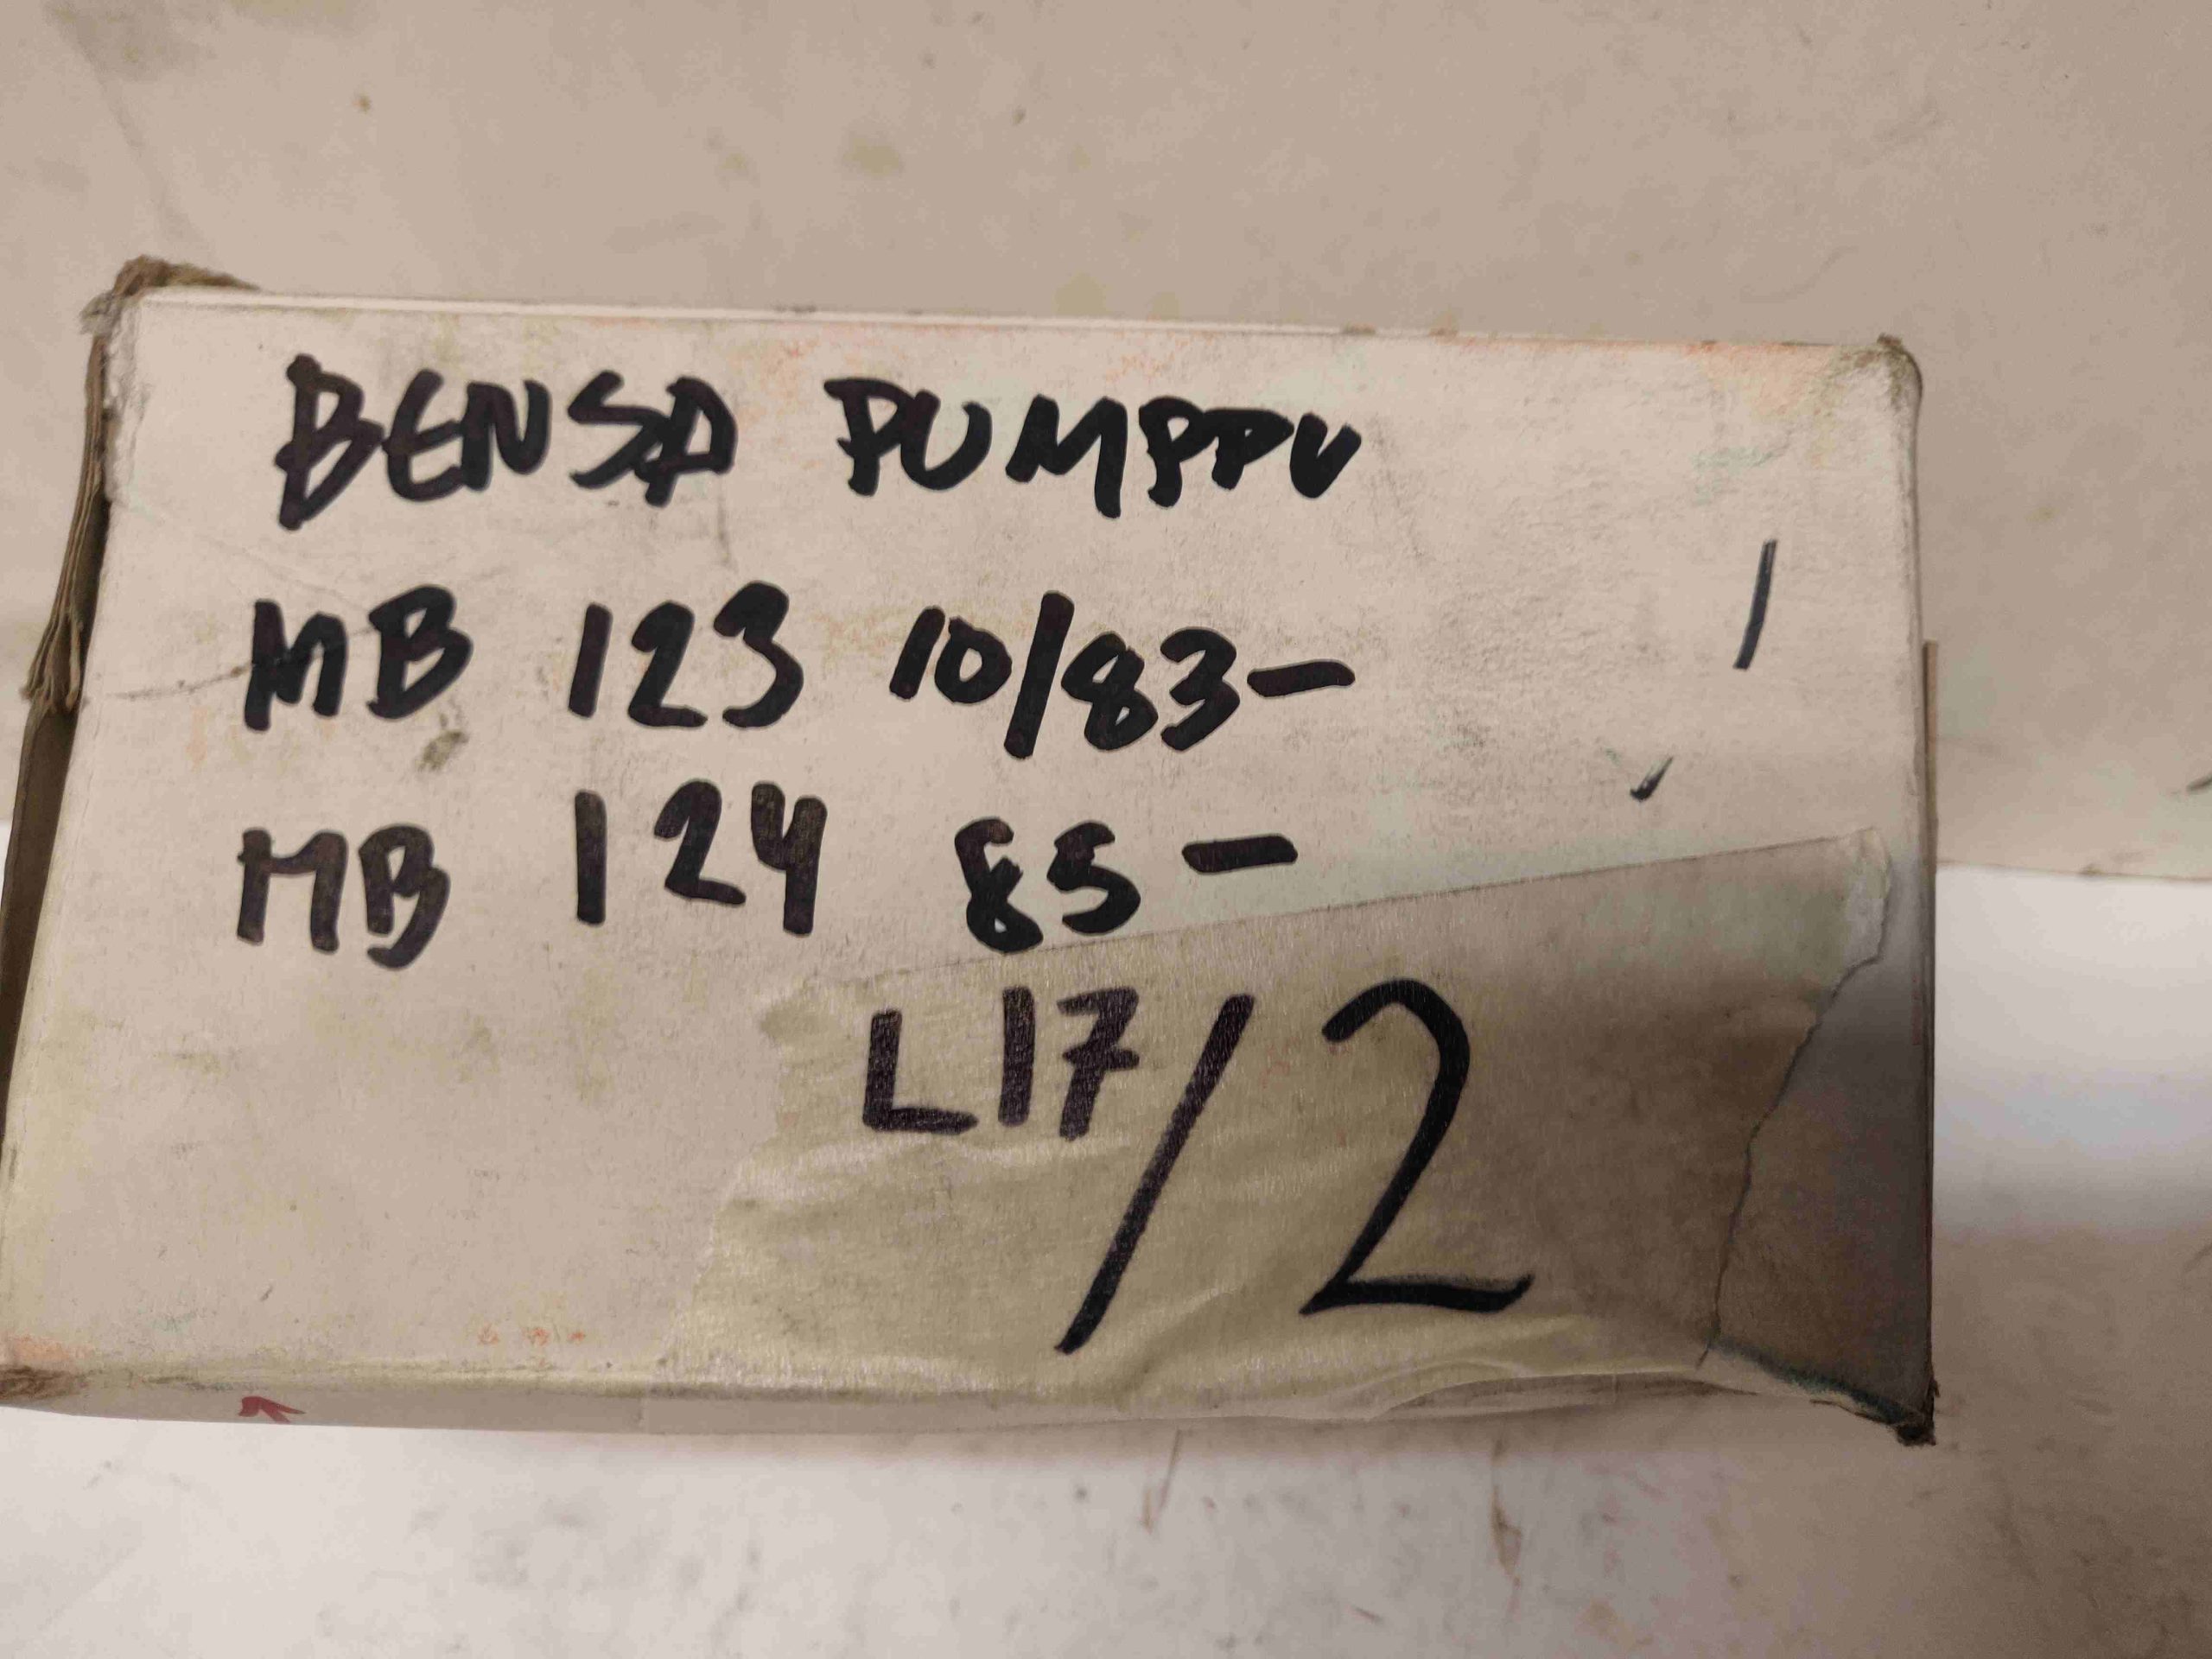 BENSA PUMPPU
MB 123 10/83-
MB 124 85-
L17/2